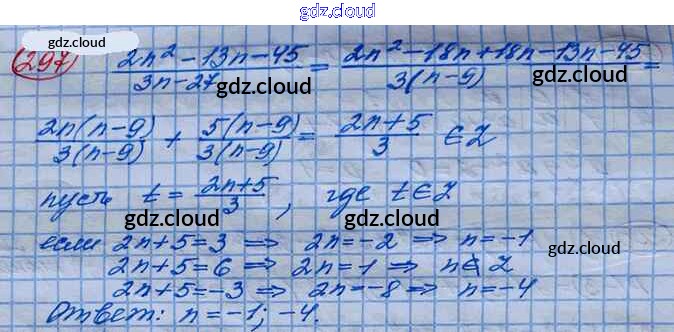 gdz.cloud
gdz.cloud
297 (2n² - 13n - 45)/(3n - 27) = (2n² - 18n + 18n - 13n - 45)/(3(n - 9)) =
gdz.cloud gdz.cloud
2n(n-9)/3(n-9) + 5(n-9)/3(n-9) = (2n+5)/3 ∈ Z
пусть t = (2n+5)/3, где t ∈ Z
gdz.cloud gdz.cloud
если 2n+5=3 ⇒ 2n=-2 ⇒ n=-1
gdz.cloud
2n+5=6 ⇒ 2n=1 ⇒ n∉Z
2n+5=-3 ⇒ 2n=-8 ⇒ n=-4
Ответ: n=-1; -4.
gdz.cloud